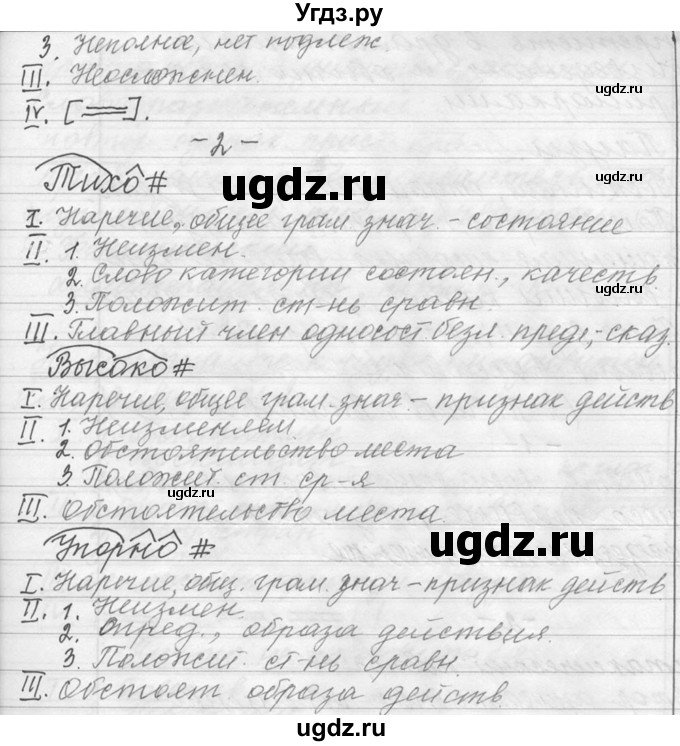 Угдз.ру
3. Неполное, нет подлеж.
III. Неосложнен.
IV. [ ].
- 2 -
Тихо #
I. Наречие, общее грам. знач. - состояние
II. 1. Неизмен.
2. Слово категории состоян., качеств.
3. Положит. ст-нь сравн.
III. Главный член односост. безл. предл., - сказ.
Высоко #
I. Наречие, общее грам. знач. - признак действ.
II. 1. Неизменяем.
2. Обстоятельство места
3. Положит. ст. ср-я
III. Обстоятельство места.
Упорно #
I. Наречие, общ. грам. знач - признак действ.
II. 1. Неизмен.
2. Опред., образа действия.
3. Положит. ст-нь сравн.
III. Обстоят. образа действ.
ugdz.ru
ugdz.ru
ugdz.ru
ugdz.ru
ugdz.ru
ugdz.ru
ugdz.ru
ugdz.ru
ugdz.ru